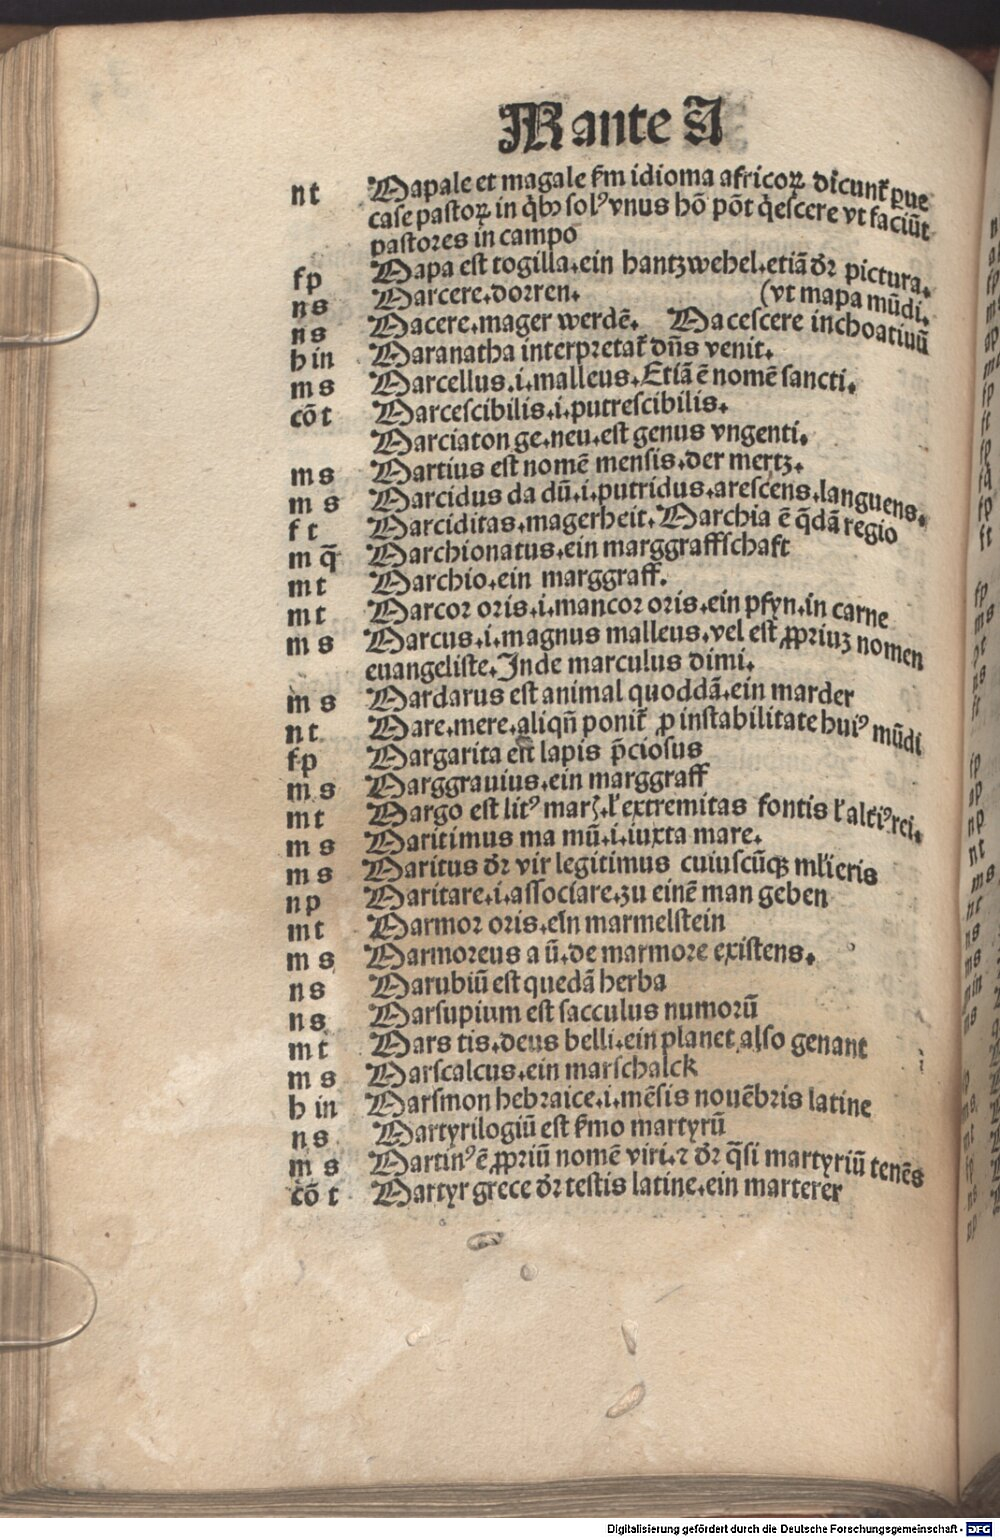 M ante A
nt Mapale et magale ẜm idioma africoꝝ dicunt᷑ ꝑue
caſe paſtoꝝ in q̇bꝰ ſolꝰ vnus hō pōt q̇eſcere vt faciūt
paſtores in campo
fp Mapa eſt togilla.ein hantzwehel.etiā dꝛ pictura.
ns Marcere.dorren. (vt mapa mūdi.
ns Macere.mager werdē. Maceſcere inchoatiuū
h in Maranatha interpretat᷑ dn̄s venit.
m s Marcellus.i.malleus.Etiā ē nomē ſancti.
cō t Marceſcibilis.i.putreſcibilis.
Marciaton ge.neu.eſt genus vngenti.
m s Martius eſt nomē menſis.der mertz.
m s Marcidus da dū.i.putridus.areſcens.languens.
f t Marciditas.magerheit.Marchia ē q̄dā regio
m q̄ Marchionatus.ein marggraffſchaft
m t Marchio.ein marggraff.
m t Marcor oris.i.mancor oris.ein pfyn.in carne
m s Marcus.i.magnus malleus.vel eſt ꝓpriuʒ nomen
euangeliſte.Inde marculus dimi.
m s Mardarus eſt animal quoddā.ein marder
n t Mare.mere.aliqn̄ ponit᷑ ꝓ inſtabilitate huiꝰ mūdi
fp Margarita eſt lapis p̄cioſus
m s Marggrauius.ein marggraff
m t Margo eſt litꝰ mar᷒.ł extremitas fontis ł alt᷑iꝰ rei.
m s Maritimus ma mū.i.iuxta mare.
m s Maritus dꝛ vir legitimus cuiuſcūqꝫ ml̓ieris
n p Maritare.i.aſſociare.zu einē man geben
m t Marmor oris.ein marmelſtein
m s Marmoreus a ū.de marmore exiſtens.
n s Marubiū eſt quedā herba
n s Marſupium eſt ſacculus numorū
m t Mars tis.deus belli.ein planet alſo genant
m s Marſcalcus.ein marſchalck
h in Marſmon hebraice.i.mēſis nouēbris latine
n s Martyrilogiū eſt ẜmo martyrū
m s Martinꝰ ē ꝓpriū nomē viri.⁊ dꝛ q̄ſi martyriū tenēs
cō t Martyr grece dꝛ teſtis latine.ein marterer
Digitalisierung gefördert durch die Deutsche Forschungsgemeinschaft - DFG